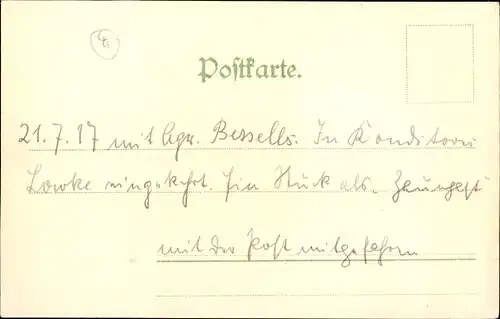 Postkarte.
21.7.17 mit Bessells. In Konditorei
Lowke eingekehrt. Ein Stück als
mit der Post mitgefahren